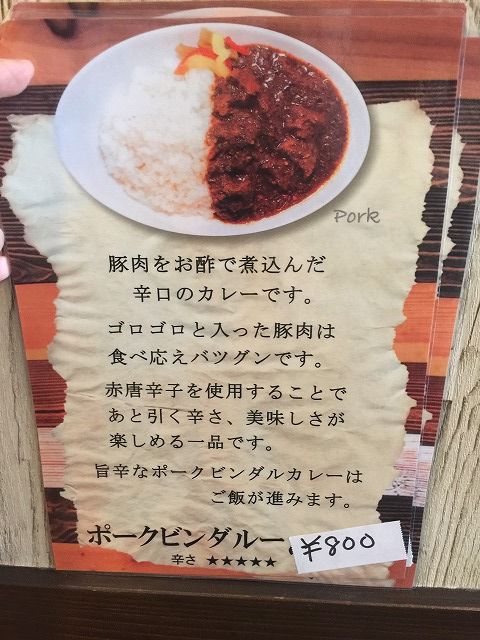 Pork
豚肉をお酢で煮込んだ
辛口のカレーです。
ゴロゴロと入った豚肉は
食べ応えバツグンです。
赤唐辛子を使用することで
あと引く辛さ、美味しさが
楽しめる一品です。
旨辛なポークビンダルカレーは
ご飯が進みます。
ポークビンダルー
¥800
辛さ ★★★★★